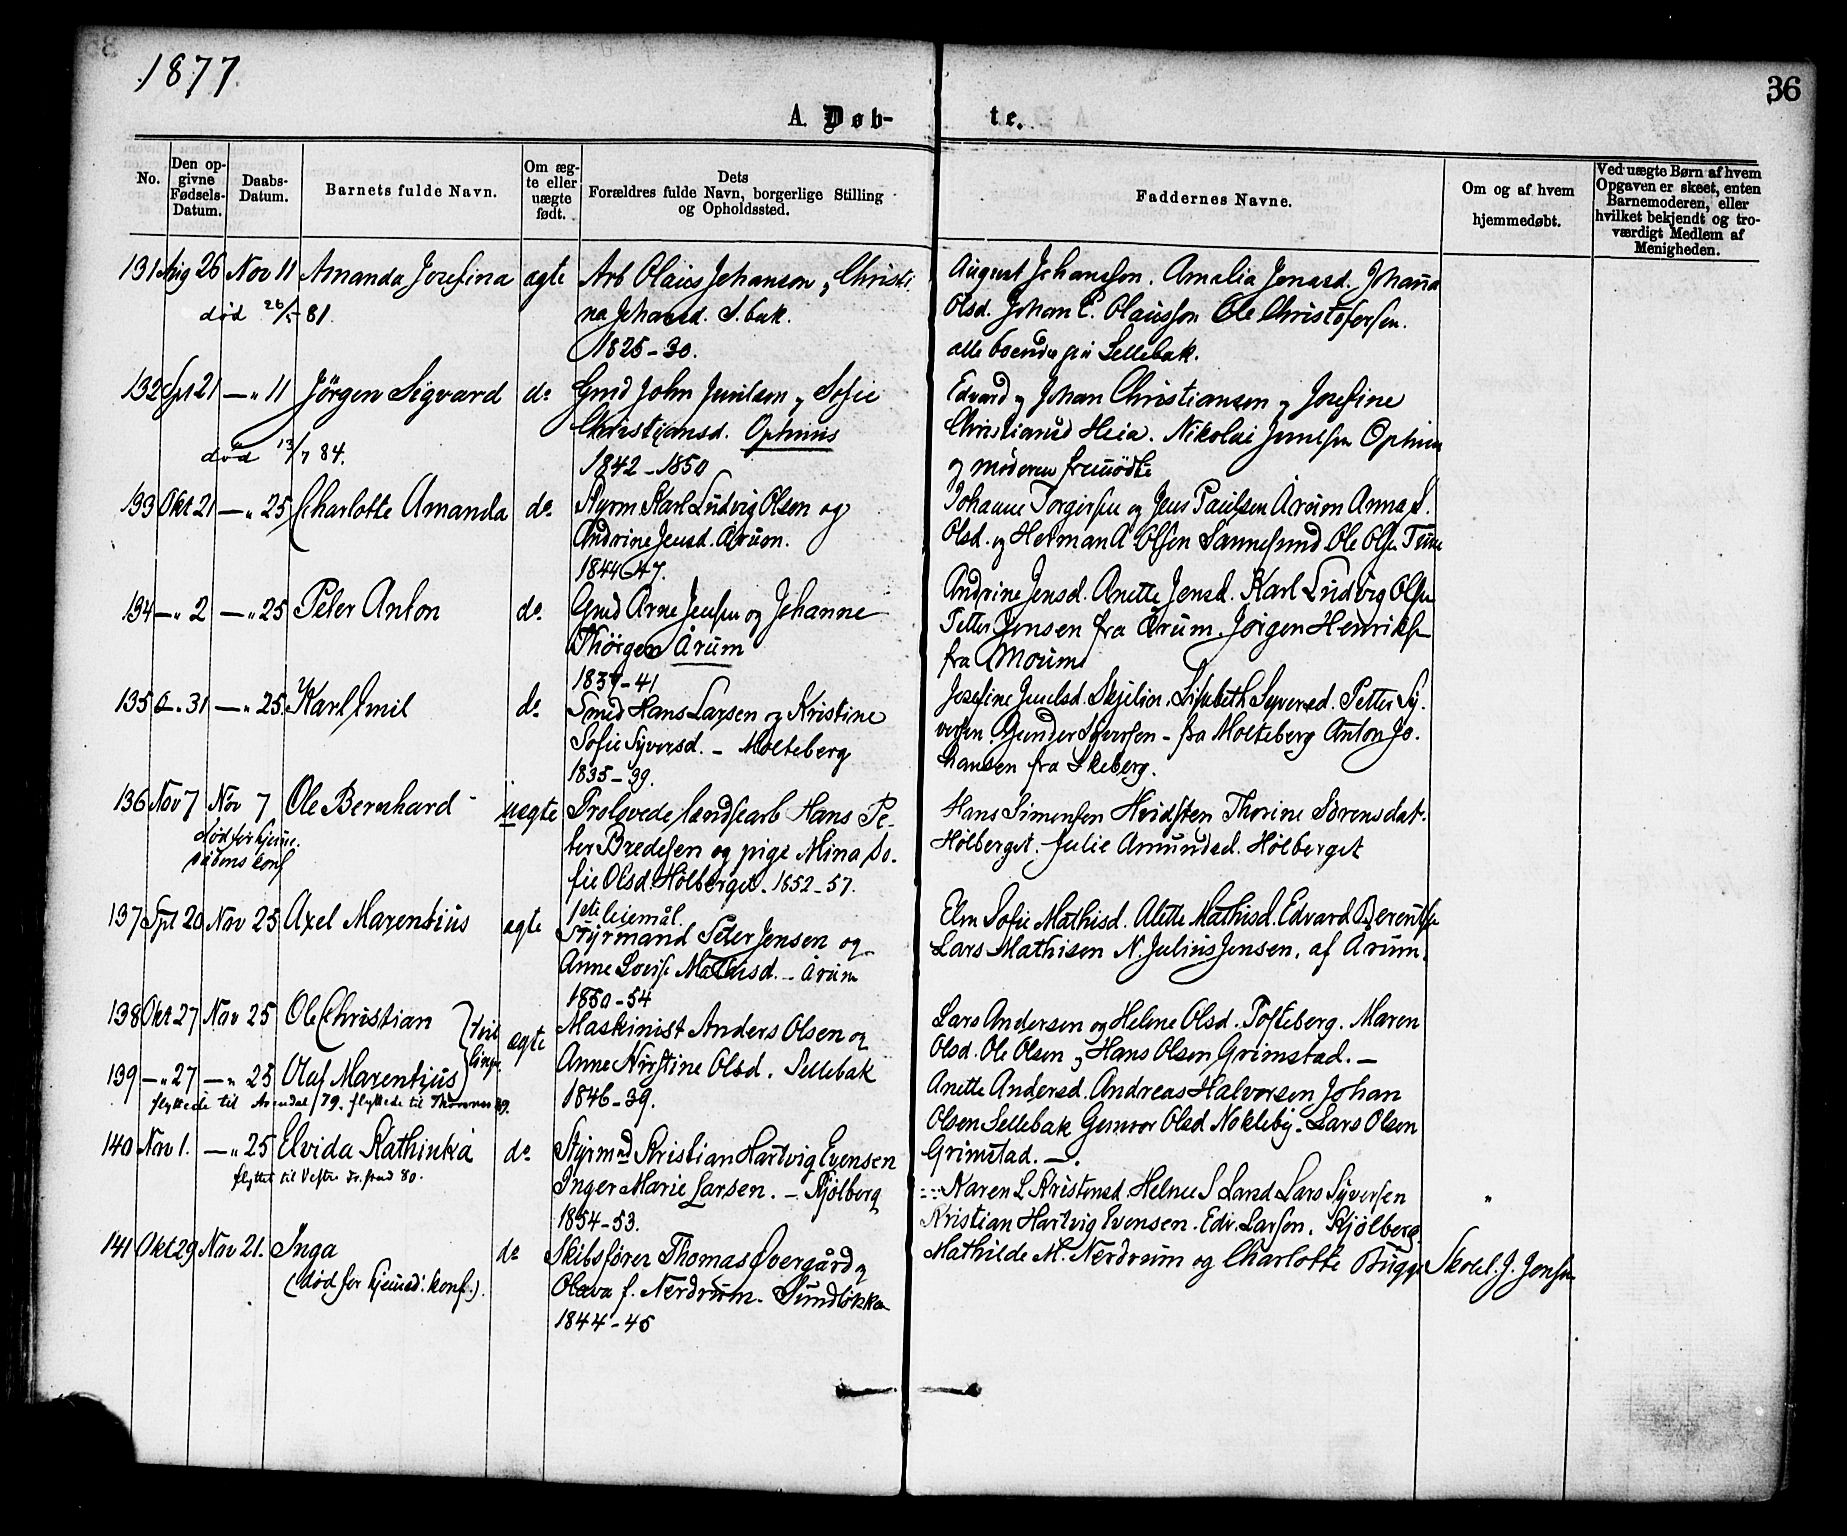 1877.
36
A. Døb-
te.
No.
Den op-
givne
Fødsels-
Datum.
Daabs-
Datum.
Barnets fulde Navn.
Om æg-
te eller
uægte
født.
Dets
Forældres fulde Navn, borgerlige Stilling
og Opholdssted.
Faddernes Navne.
Om og af hvem
hjemmedøbt.
Ved uægte Børn af hvem
Opgaven er skeet, enten
Barnemoderen, eller
hvilket bekjendt og tro-
værdigt Medlem af
Menigheden.
131 Aug 26 Nov 11 Amanda Josefina ægte Arb Olaus Johanson, Christi
død 26/5 81.
na Johansd. S.bak.
1825-30.
August Johanssen. Amalia Jonasd. Johanna
Olsd. Johan E. Olausson Ole Christofersen.
alle boende på Sellebak.
132 Spt 21 — " 11 Jörgen Sigvard do Gmd John Juulsen og Sofie
død 13/7 84.
Christiansd. Ophuus
1842-1850
Edvard og Johan Christiansen og Josefine
Christiansd Heia. Nikolai Juulsen Ophuus
og moderen fremødte
133 Okt 21 — " 25 Charlotte Amanda do Styrm Karl Ludvig Olsen og
Andrine Jensd. Årum.
1844-47.
Johanne Torgersen og Jens Paulsen Årum Anna S.
Olsd. og Herman A Olsen Sannesund Ole Olsen Tune
134 — " 2 — " 25 Peter Anton do Gmd Arne Jensen og Johanne
Thörgers Årum
1837-41
Andrine Jensd. Anette Jensd. Karl Ludvig Olsen
Petter Jensen fra Årum. Jörgen Henriksen
fra Moum
135 — " 31 — " 25. Karl Emil do Smed Hans Larsen og Kristine
Sofie Syversd. — Molteberg
1835-39.
Josefine Juulsd. Skjelin. Lisabeth Syversd. Petter Sy-
versen. Gunder Syversen - fra Molteberg Anton Jo-
hansen fra Skeberg.
136 Nov 7 Nov 7 Ole Bernhard uægte Forlovede landsearb Hans Pe-
død før hjemme-
dåbens konf
ter Bredesen og pige Mina So-
fie Olsd. Hölberget. 1852-57.
1ste leiemål.
Hans Simensen Hvidsten Thorine Sörensdat.
Hölberget. Julie Amundsd. Hölberget
137 Spt 20 Nov 25 Axel Marentius ægte Styrmand Peter Jensen og
Anne Lovise Mathisd. — Årum
1850-54
Elen Sofie Mathisd. Alette Mathisd. Edvard Berentsen
Lars Mathisen N. Julius Jensen. af Årum.
138 Okt 27 Nov 25 Ole Christian } Tvil ægte Maskinist Anders Olsen og
linge
139 — " 27 — " 25 Olaf Marentius Anne Kirstine Olsd. Sellebak
flyttede til Arendal /79. flyttede til 89.
1846-39.
Lars Andersen og Helene Olsd. Tofteberg. Maren
Olsd. Ole Olsen og Hans Olsen Grimstad. —
Anette Andersd. Andreas Halvorsen Johan
Olsen Sellebak Gunvor Olsd Nökleby. Lars Olsen
Grimstad. — .
140 Nov 1. — " 25 Elvida Kathinka do Styrmnd Kristian Hartvig Evensen
flyttet til Vestre Fr.stad 80.
Inger Marie Larsen. — Kjölberg
1854-53.
Karen L Kristensd. Helene S Larsd Lars Syversen "
Kristian Hartvig Evensen. Edv. Larsen. Kjölberg
141 Okt 29 Nov 21. Inga do Skibsfører Thomas Overgård og
(død før hjemmed: konf.).
Olava f. Nerdrum. Sundlökka
1844-45
Mathilde M. Nerdrum og Charlotte Bugge Skolel. J. Jensen